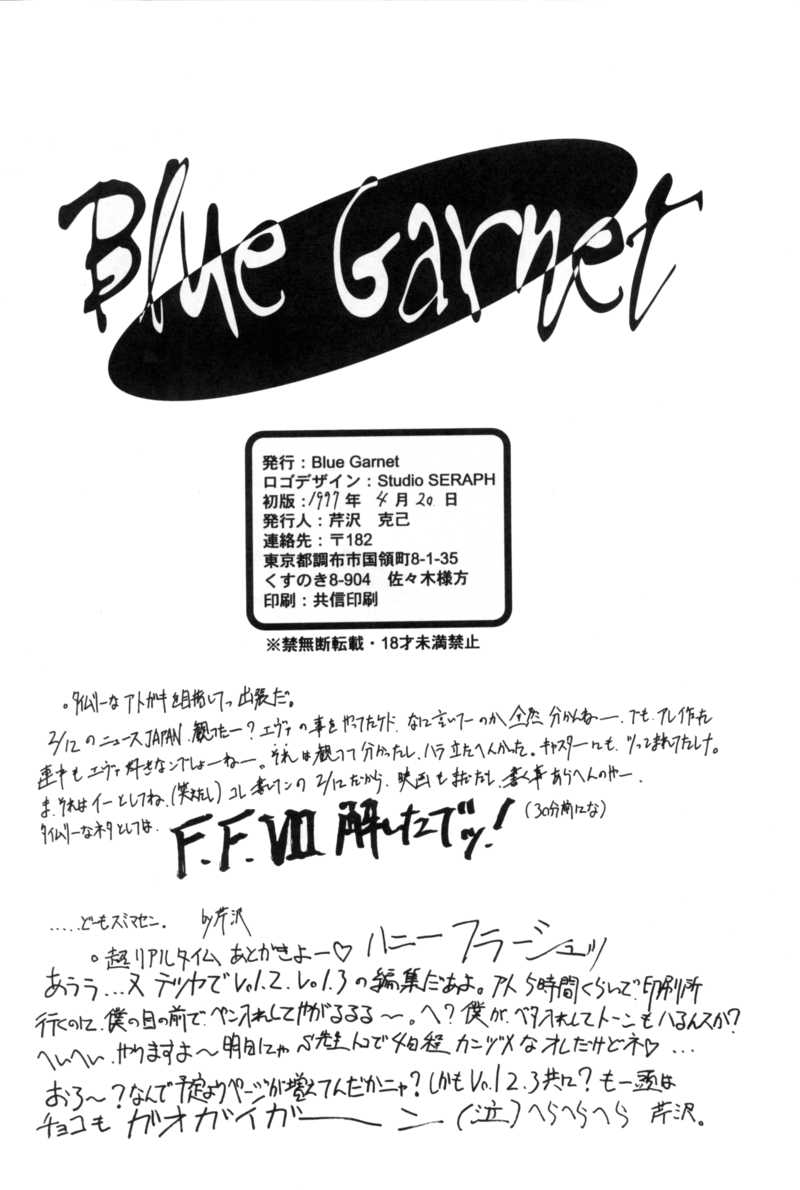 Blue Garnet
発行：Blue Garnet
ロゴデザイン：Studio SERAPH
初版：1997年 4月20日
発行人：芹沢　克己
連絡先：〒182
東京都調布市国領町8-1-35
くすのき8-904　佐々木様方
印刷：共信印刷
※禁無断転載・18才未満禁止
。タイムリーなアトガキを目指してっ出発だ。
2/12のニュースJAPAN、観たー？エヴァの事をやってたケド、なに言いてーのか全然分かんねー、でも、アレ作った
連中もエヴァ好きなんでしょーねー。それは観てて分かったし、ハラ立たへんかった。キャスターにも、ツッこまれてたしナ。
ま、それはイーとしてね、(笑えたし) コレ書いてンの2/12だから、映画もまだだし、書く事あらへんのやー、
タイムリーなネタとしては、
F.F.VII 解したでッ！(30分前にな)
.....どーもスミマセン。 by 芹沢
。超リアルタイム、あとがきよー♡ ハニーフラーシュッ
あうう...ヌ テツヤでVol.2、Vol.3の編集だあよ。アト5時間くらいで印刷所
行くのに、僕の目の前で、ペン入れしてやがるるる〜。へ？僕が、ベタ入れしてトーンもハるんスか？
へいへい、やりますよ〜明日にゃS先生んトコで4日程カンヅメなオレだけどネ♡...
おろ〜？なんで予定よりページが増えてんだかニャ？しかもVol.2.3共に？も一頭は
チョコも ガオガイガーーン (泣) へらへらへら 芹沢。